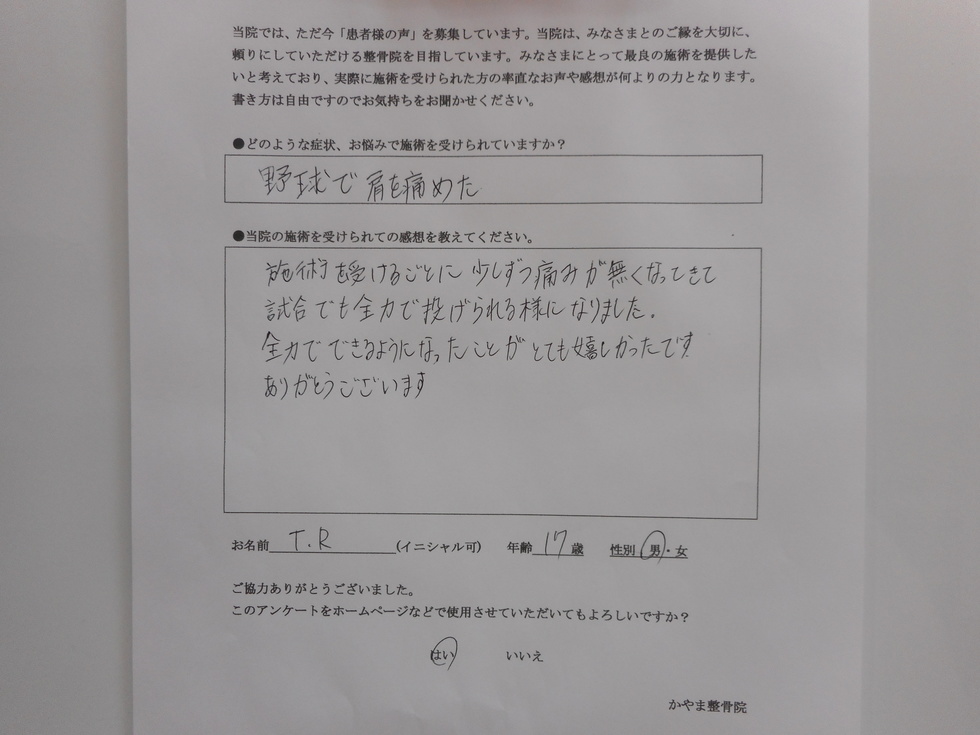 当院では、ただ今「患者様の声」を募集しています。当院は、みなさまとのご縁を大切に、
頼りにしていただける整骨院を目指しています。みなさまにとって最良の施術を提供した
いと考えており、実際に施術を受けられた方の率直なお声や感想が何よりの力となります。
書き方は自由ですのでお気持ちをお聞かせください。
●どのような症状、お悩みで施術を受けられていますか？
野球で肩を痛めた
●当院の施術を受けられての感想を教えてください。
施術を受けるごとに少しずつ痛みが無くなってきて
試合でも全力で投げられる様になりました。
全力でできるようになったことがとても嬉しかったです
ありがとうございます
お名前 T.R (イニシャル可) 年齢 17 歳 性別 男・女
ご協力ありがとうございました。
このアンケートをホームページなどで使用させていただいてもよろしいですか？
はい いいえ
かやま整骨院